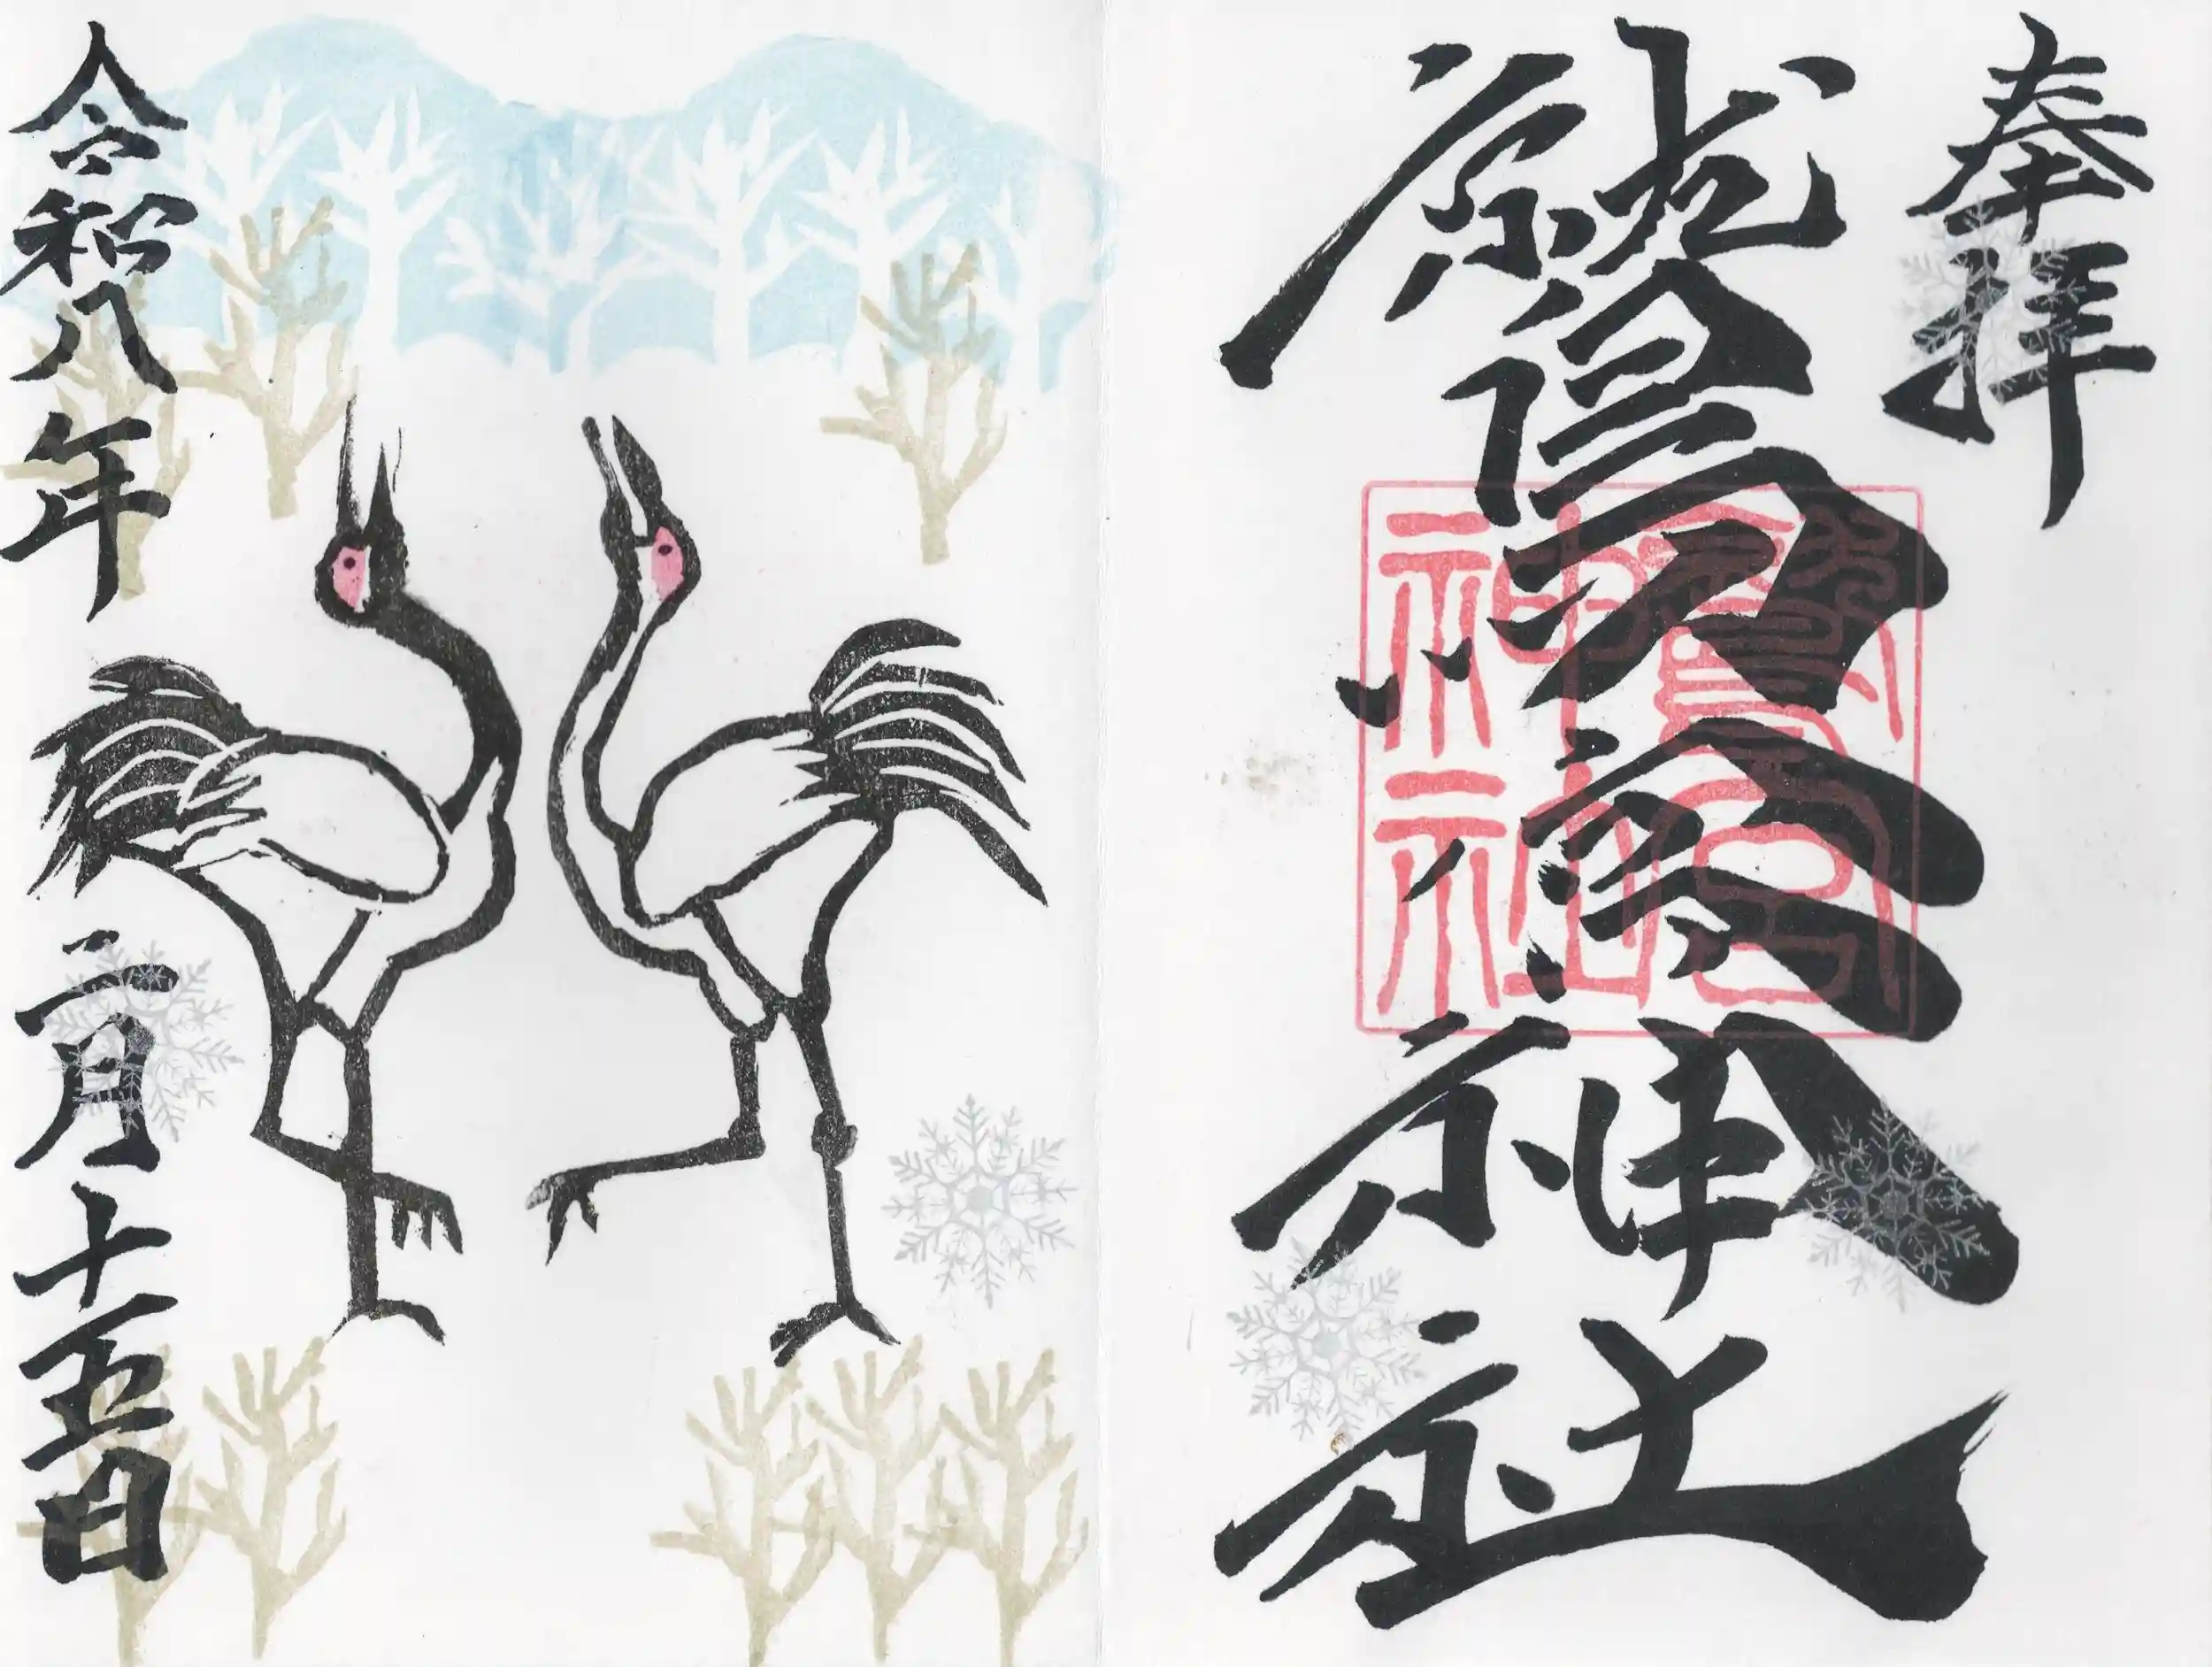 奉拝
鷲宮神社
鷲宮
神社
令和八年二月十五日